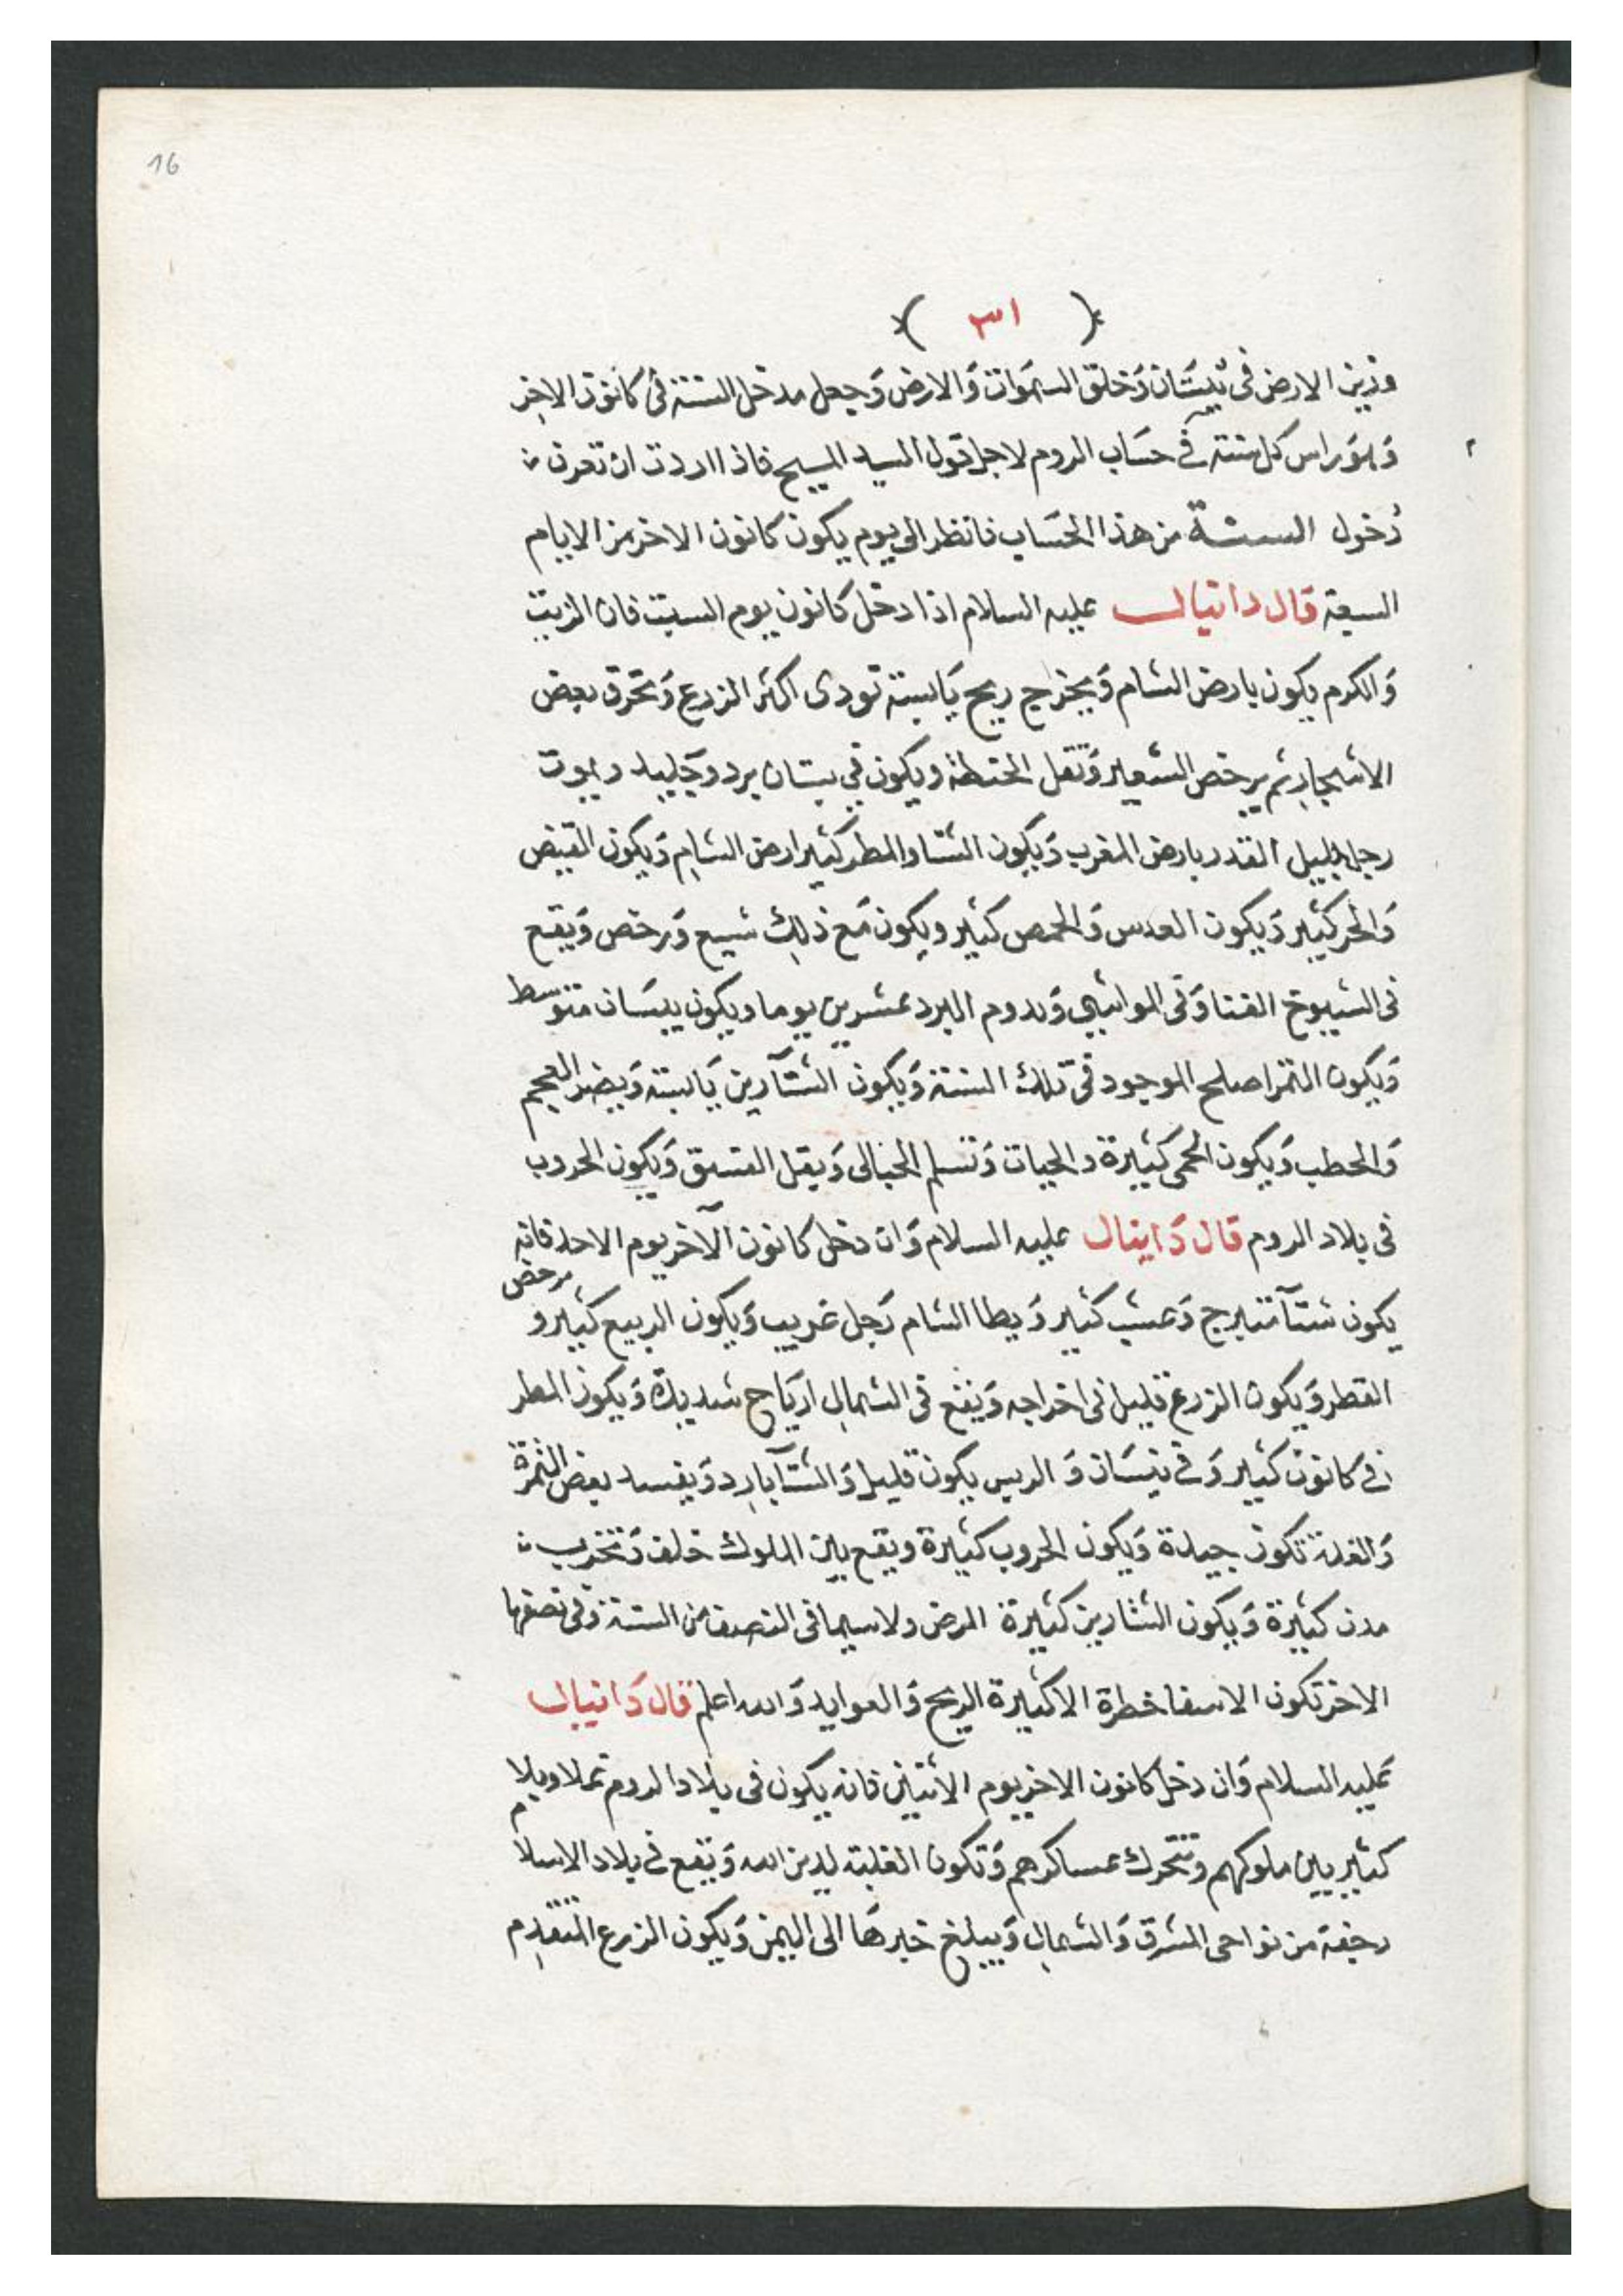 16
( ٣١ )
وزين الارض فى نيسان وخلق السموات والارض وجعل مدخل السنة فى كانون الاخر
وهو راس كل سنة فى حساب الروم لاجل قول السيد المسيح فاذا اردت ان تعرف
دخول السنة من هذا الحساب فانظر الى يوم يكون كانون الاخر من الايام
السبعة قال دانيال عليه السلام اذا دخل كانون يوم السبت فان الزيت
والكرم يكون بارض الشام ويخرج ريح يابسة تودى اكثر الزرع وتحرق بعض
الاشجار ثم يرخص الشعير وتقل الحنطة ويكون فى نيسان برد وجليد ويموت
رجل جليل القدر بارض المغرب ويكون الشتا والمطر كثير ارض الشام ويكون القيض
والحر كثير ويكون العدس والحمص كثير ويكون مع ذلك شبع ورخص ويقع
فى الشيوخ الفنا وفى المواشى ويدوم البرد عشرين يوما ويكون نيسان متوسط
ويكون التمر اصلح الموجود فى تلك السنة ويكون الشتآرين يابسة ويضر العجم
والحطب ويكون الحمى كثيرة والحيات وتسلم الحبالى ويقل الفستق ويكون الحروب
فى بلاد الروم قال دانيال عليه السلام وان دخل كانون الآخر يوم الاحد فانه
يكون شتآ متبرج وعشب كثير ويطا الشام رجل غريب ويكون الربيع كثير ومرخص
القطر ويكون الزرع قليل فى اخراجه ويقع فى الشمال ارياح شديدة ويكون المطر
فى كانون كثير وفى نيسان و يكون قليل والشتآ بارد ويفسد بعض الثمرة
والغلة تكون جيدة ويكون الحروب كثيرة ويقع بين الملوك خلف وتخرب
مدن كثيرة ويكون التشارين كثيرة المرض ولاسيما فى النصف من السنة وفى نصفها
الاخر تكون الاسفا خطرة الا كثيرة الريح والعوايد والله اعلم قال دانيال
عليه السلام وان دخل كانون الاخر يوم الاثنين فانه يكون فى بلاد الروم
كثير بين ملوكهم وتتحرك عساكرهم وتكون الغلبة لدين الله ويقع فى بلاد الاسلام
رجفة من نواحى المشرق والشمال ويبلغ خبرها الى اليمن ويكون الزرع المتقدم